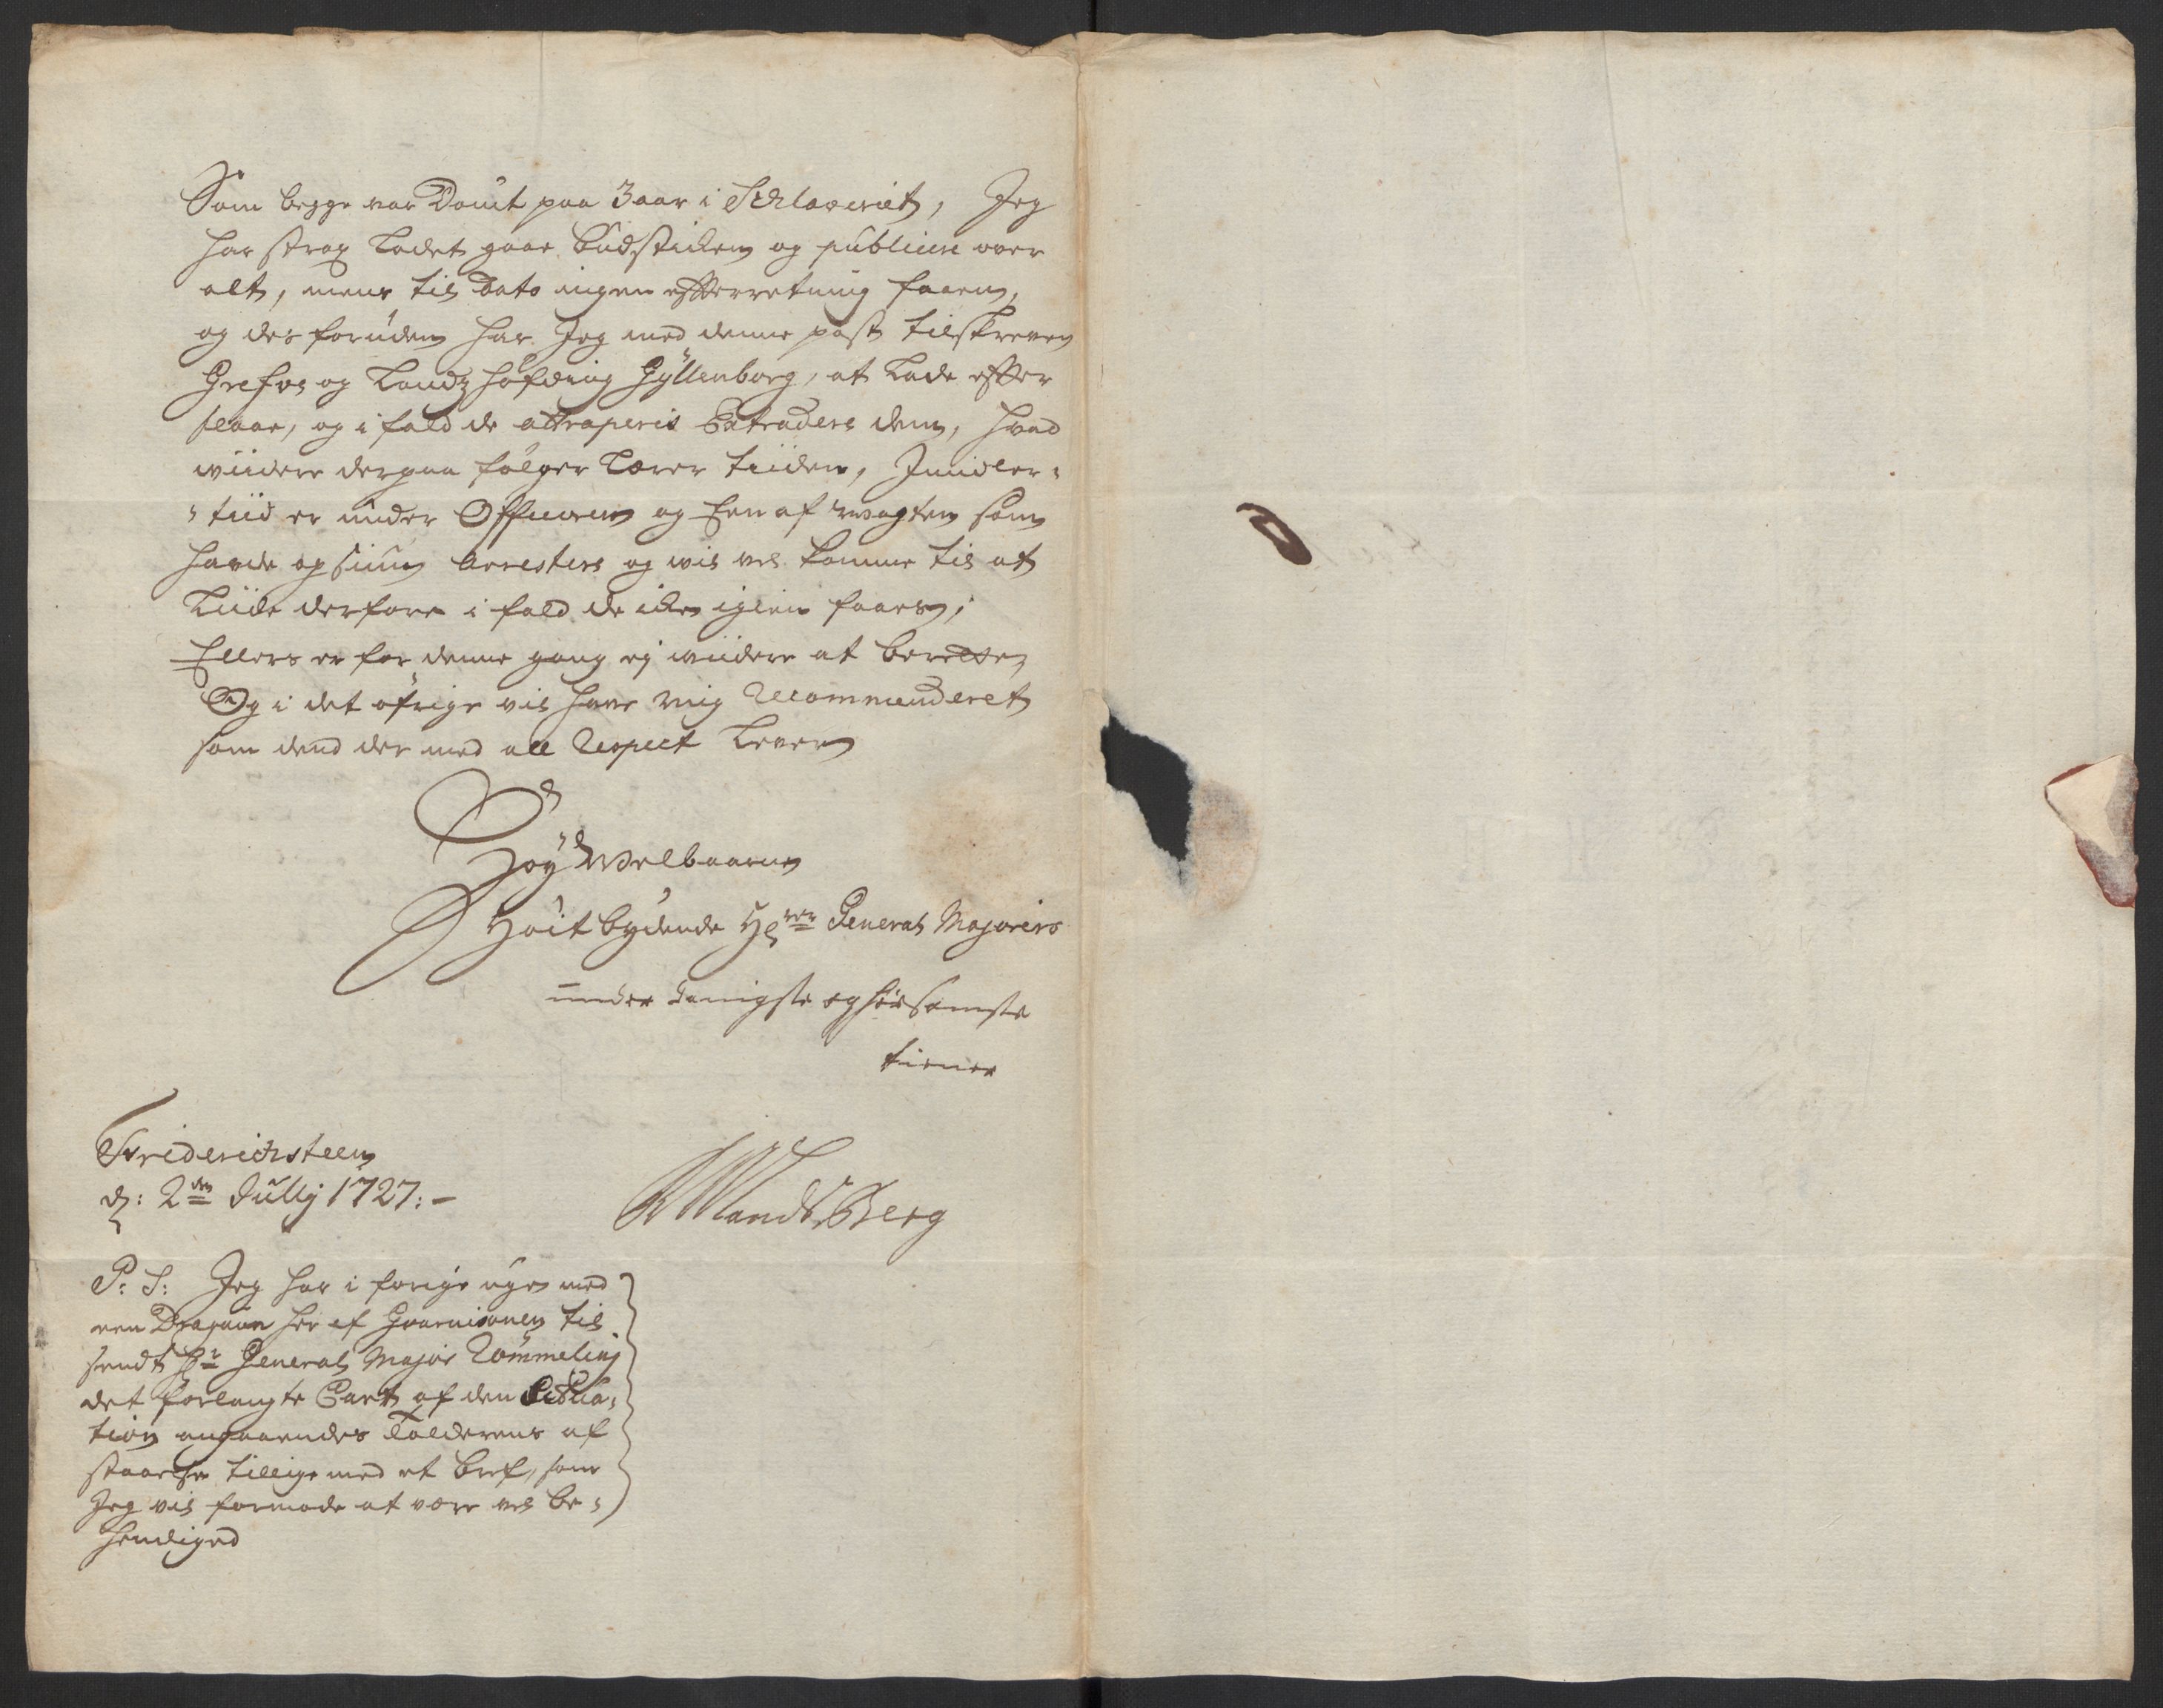 Som begge var Dömt paa 3 aar i Schlaveriet, Jeg
har strax Ladet gaae Budstiken og publicere over
alt, mens til Dato ingen effterretning faaen,
og des foruden har Jeg med denne post tilskreven
Grefve og Landzhöfding Gyllenborg, at Lade effter
slaae, og i fald de attraperis Extradere dem, hvad
viidere derpaa fölger Lærer tiiden, Jmidler-
-tiid er under Officeren og Een af wagten som
hafde opsiun Arresteret og vil vel komme til at
Liide derfore i fald de iken igien faaes,
Ellers er for denne gang ej viidere at berette,
Og i det öfrige vil have mig Recommenderet
som dend der med all Respect Lever
Höy Welbaarne
Höit bydende Hr General Majorens
under danigste og hörsomste
tiener
Friderichsteen
d: 2den Jullij 1727:-
Landtsberg
P: S: Jeg har i forige ugen med
een Dragoun her af Guarnisonen til
sendt Hr General Major Römmeling
det forlangte Part af den
tion angaaendes Tolderens af
staaelse tillige med et bref, som
Jeg vil formode at være vel be-
hendiged